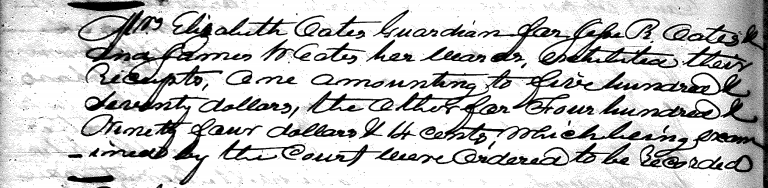 Mrs Elizabeth Oates Guardian for Jesse R Oates &
and James W Oates her wards, exhibited their
Receipts, one amounting to five hundred &
Seventy dollars, the other for Four hundred &
Ninety four dollars & 14 cents, which being exam
-ined by the Court were Ordered to be Recorded